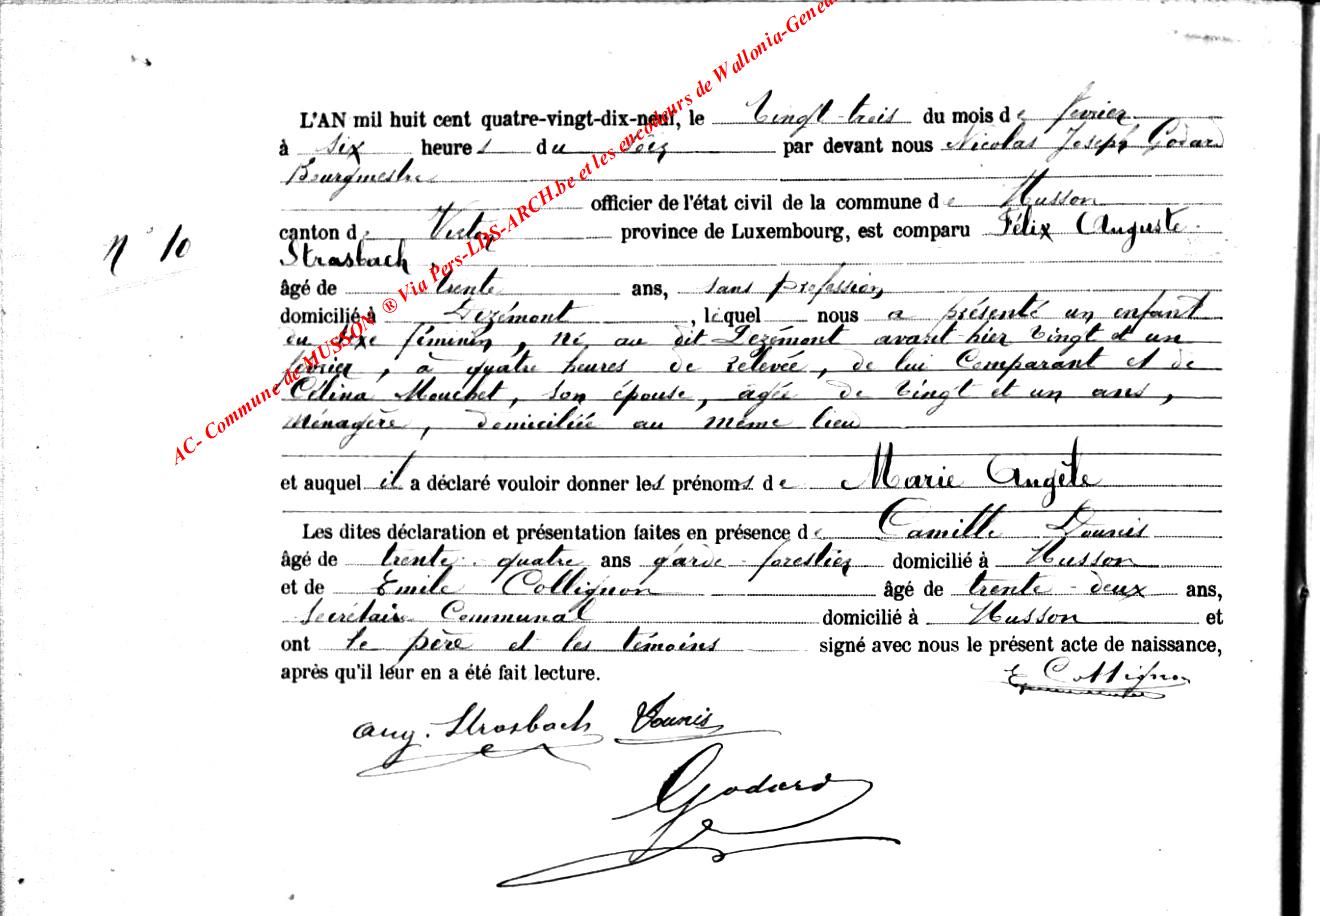 L'AN mil huit cent quatre-vingt-dix-neuf, le Vingt-trois du mois de février
à six heures du soir par devant nous Nicolas Joseph Godard
Bourgmestre
officier de l'état civil de la commune de Musson
N° 10
canton de Virton province de Luxembourg, est comparu Félix Auguste
Strasbach
âgé de trente ans, sans profession
domicilié à , lequel nous a présenté un enfant
du sexe féminin, né au dit avant-hier vingt et un
février, à quatre heures de relevée, de lui Comparant et de
Célina Mouchet, son épouse, agée de vingt et un ans,
Ménagère, domiciliée au même lieu
et auquel il a déclaré vouloir donner les prénoms de Marie Angèle
Les dites déclaration et présentation faites en présence de Camille
âgé de trente-quatre ans garde forestier domicilié à Musson
et de Emile Collignon âgé de trente-deux ans,
secrétaire Communal domicilié à Musson et
ont le père et les témoins signé avec nous le présent acte de naissance,
après qu'il leur en a été fait lecture.
E Collignon
Aug. Strasbach
Godard
AC- Commune de MUSSON ® Via Pers-LDS-ARCH.be et les encodeurs de Wallonia-Genea